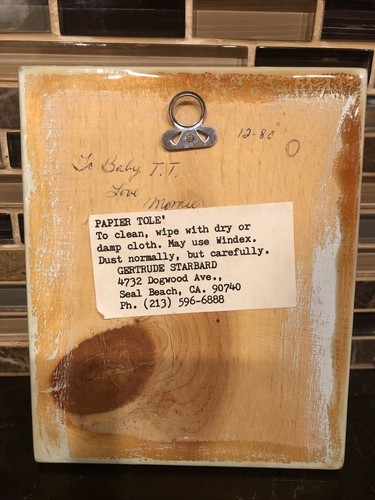 12-80
To Baby T.T.
Love
Momie
PAPIER TOLE'
To clean, wipe with dry or
damp cloth. May use Windex.
Dust normally, but carefully.
GERTRUDE STARBARD
4732 Dogwood Ave.,
Seal Beach, CA. 90740
Ph. (213) 596-6888